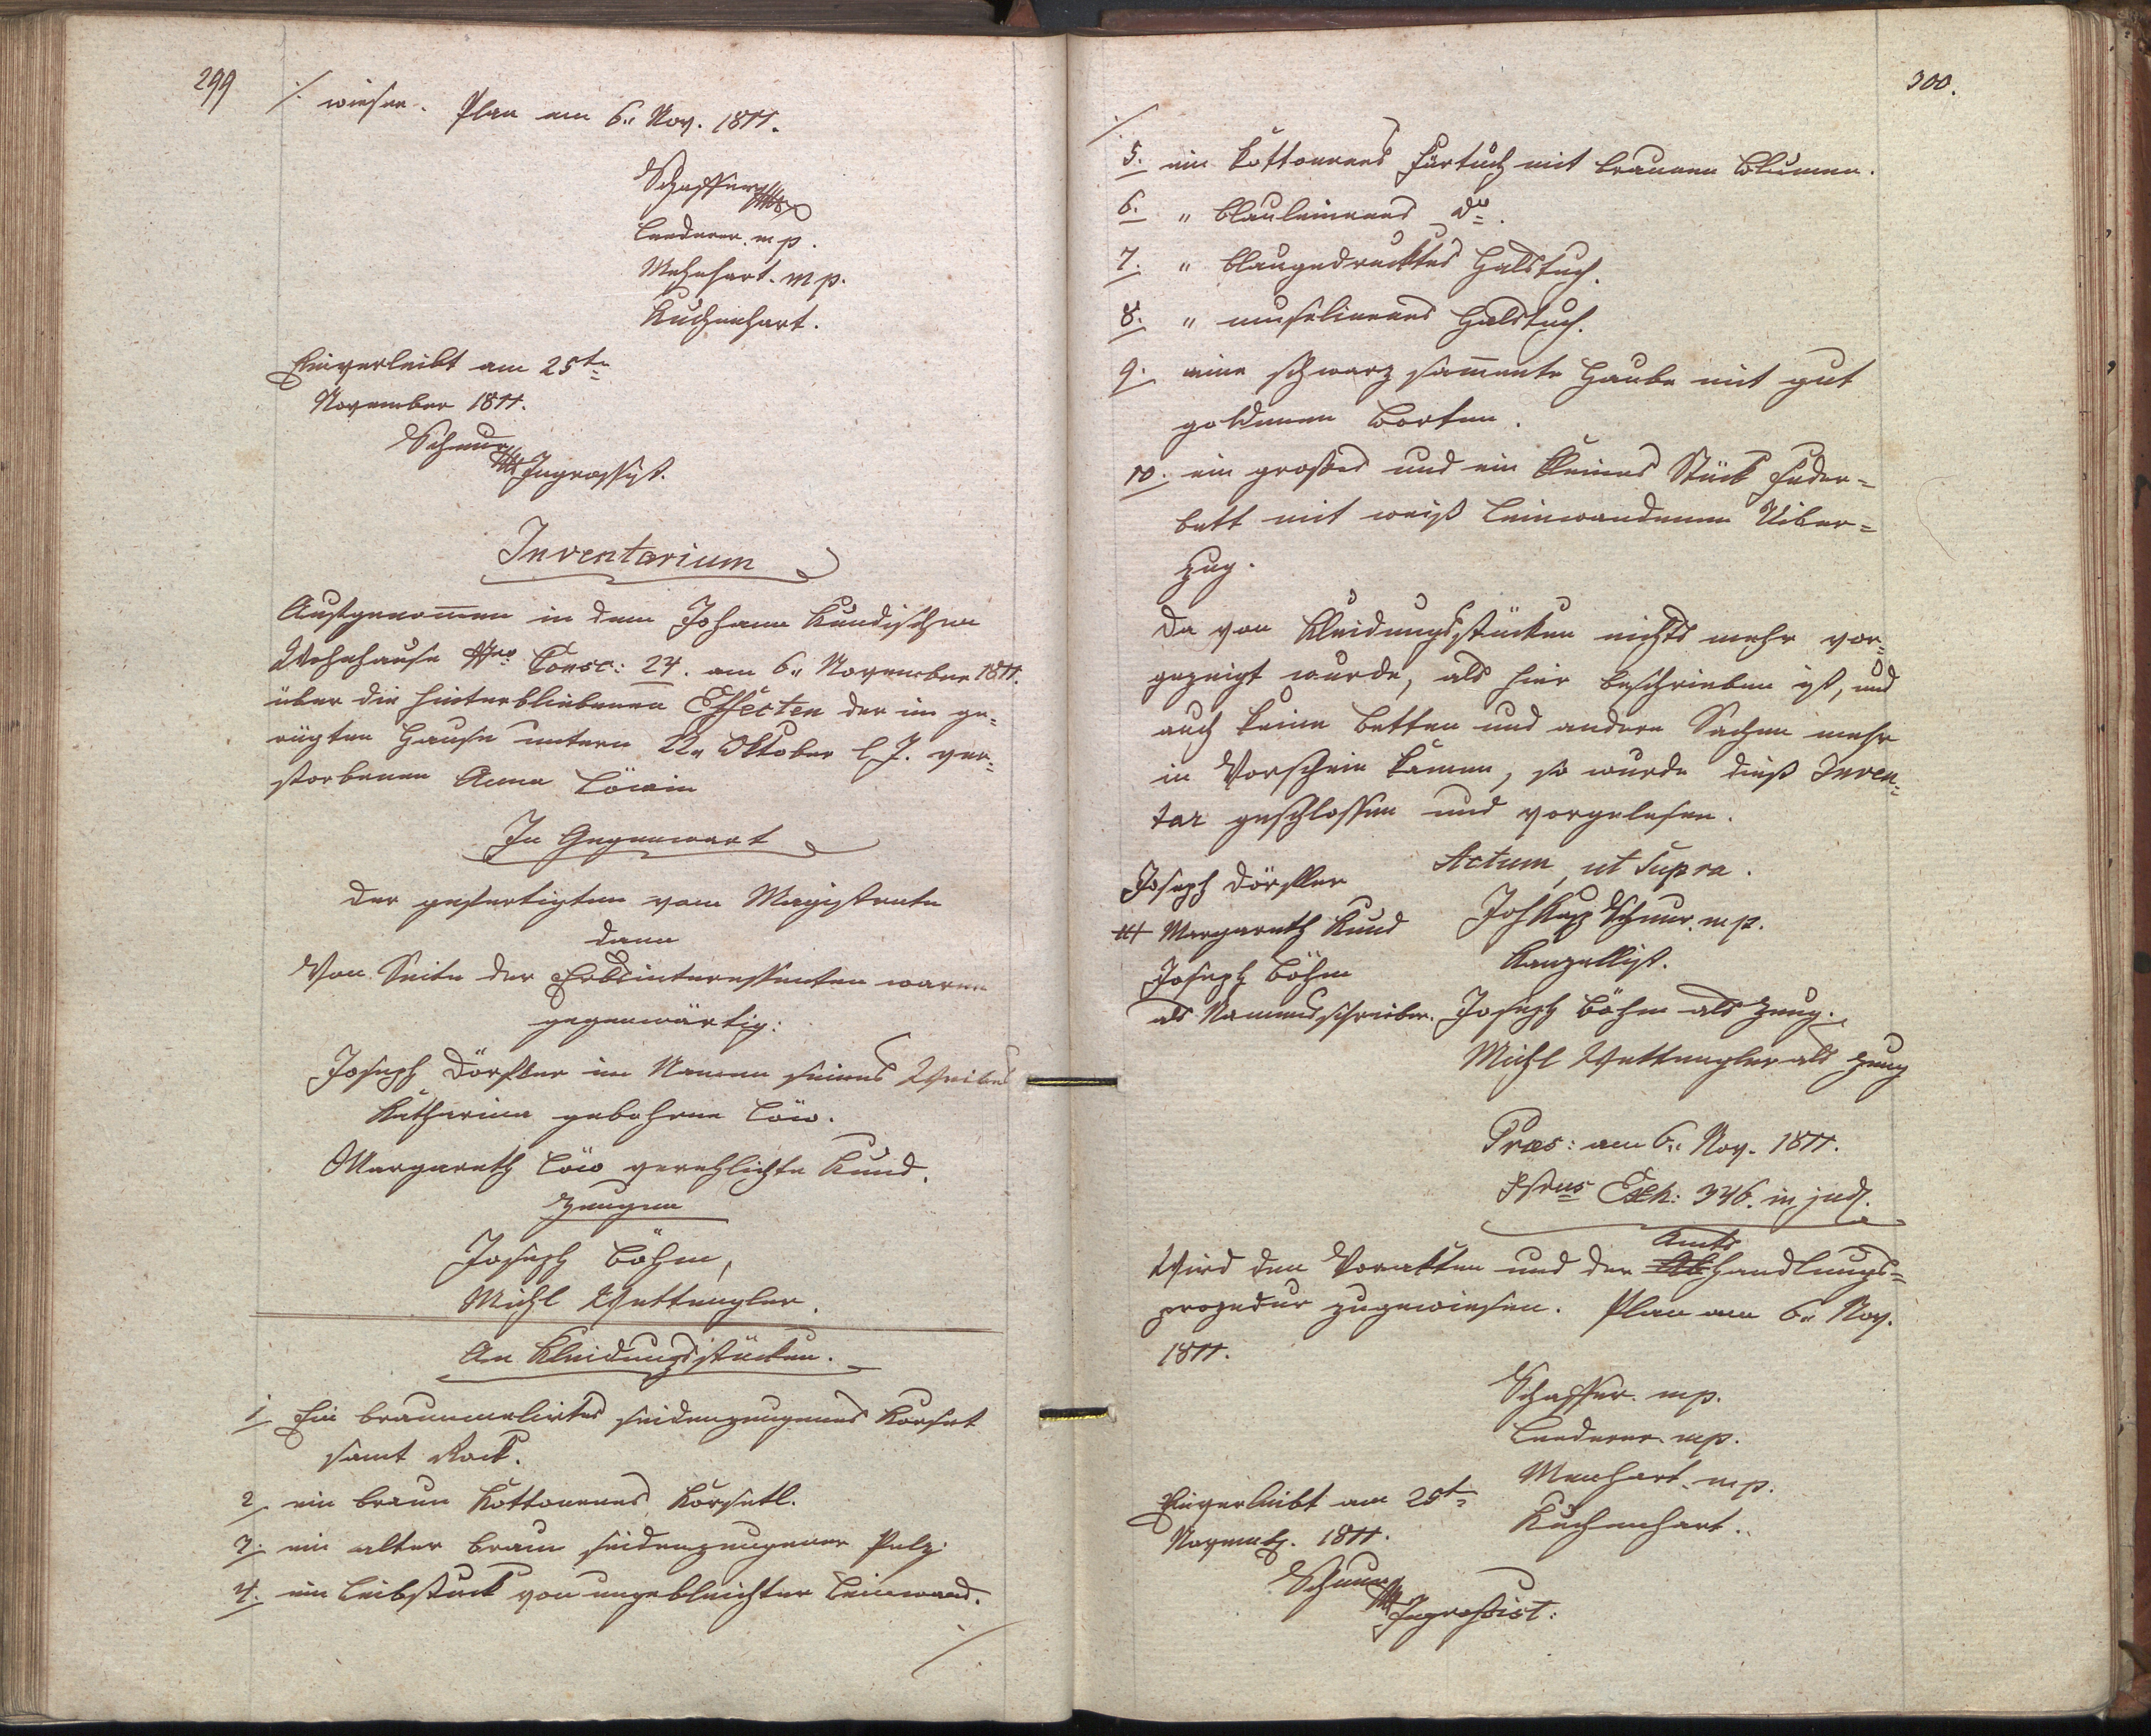 299
/. wiesen. Plan am 6.. Nov. 1811.
Schaffer mp
Lenderer. mp.
Mehnhart. mp.
Kuchenhart.
Einverleibt am 25t.
November 1811.
Schnur mp Ingrossist.
Inventarium
Aufgenom̄en in dem Johann Kundischen
Wohnhause Nro Consc: 24. am 6.. November 1811.
über die hinterbliebenen Effecten der im ge=
rügten Hause untern 22.. Oktober l. J. ver=
storbenen Anna Löwin
In Gegenwart
der gefertigten vom Magistrate
dann
Von Seite der Erbsinteressenten waren
gegenwärtig:
Joseph Dörfler im Namen seines Weibes
Katharina gebohrne Löw.
Margareth Löw verehlichte Kund.
Zeugen
Joseph Böhm,
Michl Wettengler.
An Kleidungsstücken.
1. Ein braunmelirtes seidenzeugenes Korset
samt Rock.
2. ein braun kottonenes Korsetl.
3. ein alter braun seidenzeugener Pelz.
4. ein Leibstück von ungebleichter Leinwand.
/.
300.
/.
5. ein kottonenes Fürtuch mit braunen Blumen.
6. " blauleinenes do.
7. " blaugedrucktes Halstuch.
8. " muselinenes Halstuch.
9. eine schwarz sam̄ente Haube mit gut
goldenen Borten.
10. ein großes und ein kleines Stück Feder=
bett mit weiß leinwandenen Uiber=
zug.
Da von Kleidungsstücken nichts mehr vor=
gezeigt wurde, als hier beschrieben ist, und
auch keine Betten und andere Sachen mehr
in Vorschein kamen, so wurde dieß Inven=
tar geschlossen und vorgelesen.
Actum, ut supra.
Joseph Dörfler
+++ Margareth Kund
Joseph Böhm
als Namensschreiber.
Joh Kasp Schnur. mp.
Kanzellist.
Joseph Böhm als Zeug.
Michl Wettengler als Zeug
Præs: am 6.. Nov. 1811.
Nrus Exh: 346. in jud.
Wird den Voracten und der Amtshandlungs=
prozedur zugewiesen. Plan am 6.. Nov.
1811.
Schaffer. mp.
Lenderer. mp.
Menhart. mp.
Kuchenhart.
Einverleibt am 25t.
Novemb. 1811.
Schnur mp Ingrossist: